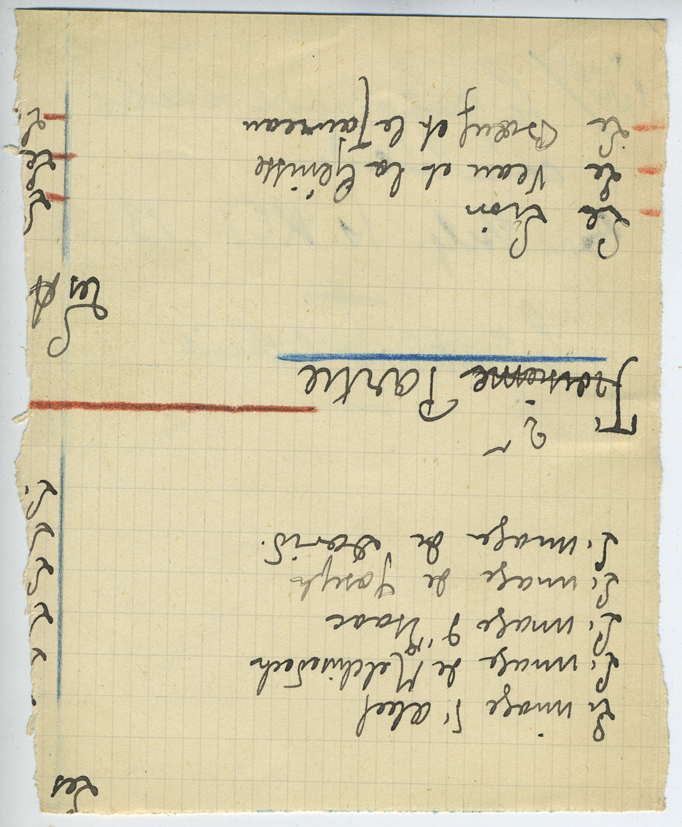 Les
L'image d'Abel
L'image de Melchisedech
L'image d'Isaac
L'image de Joseph
L'image de David.
2e
Troisieme Partie
Les A
Le Lion
Le Veau et la Génisse
Le Bœuf et le Taureau